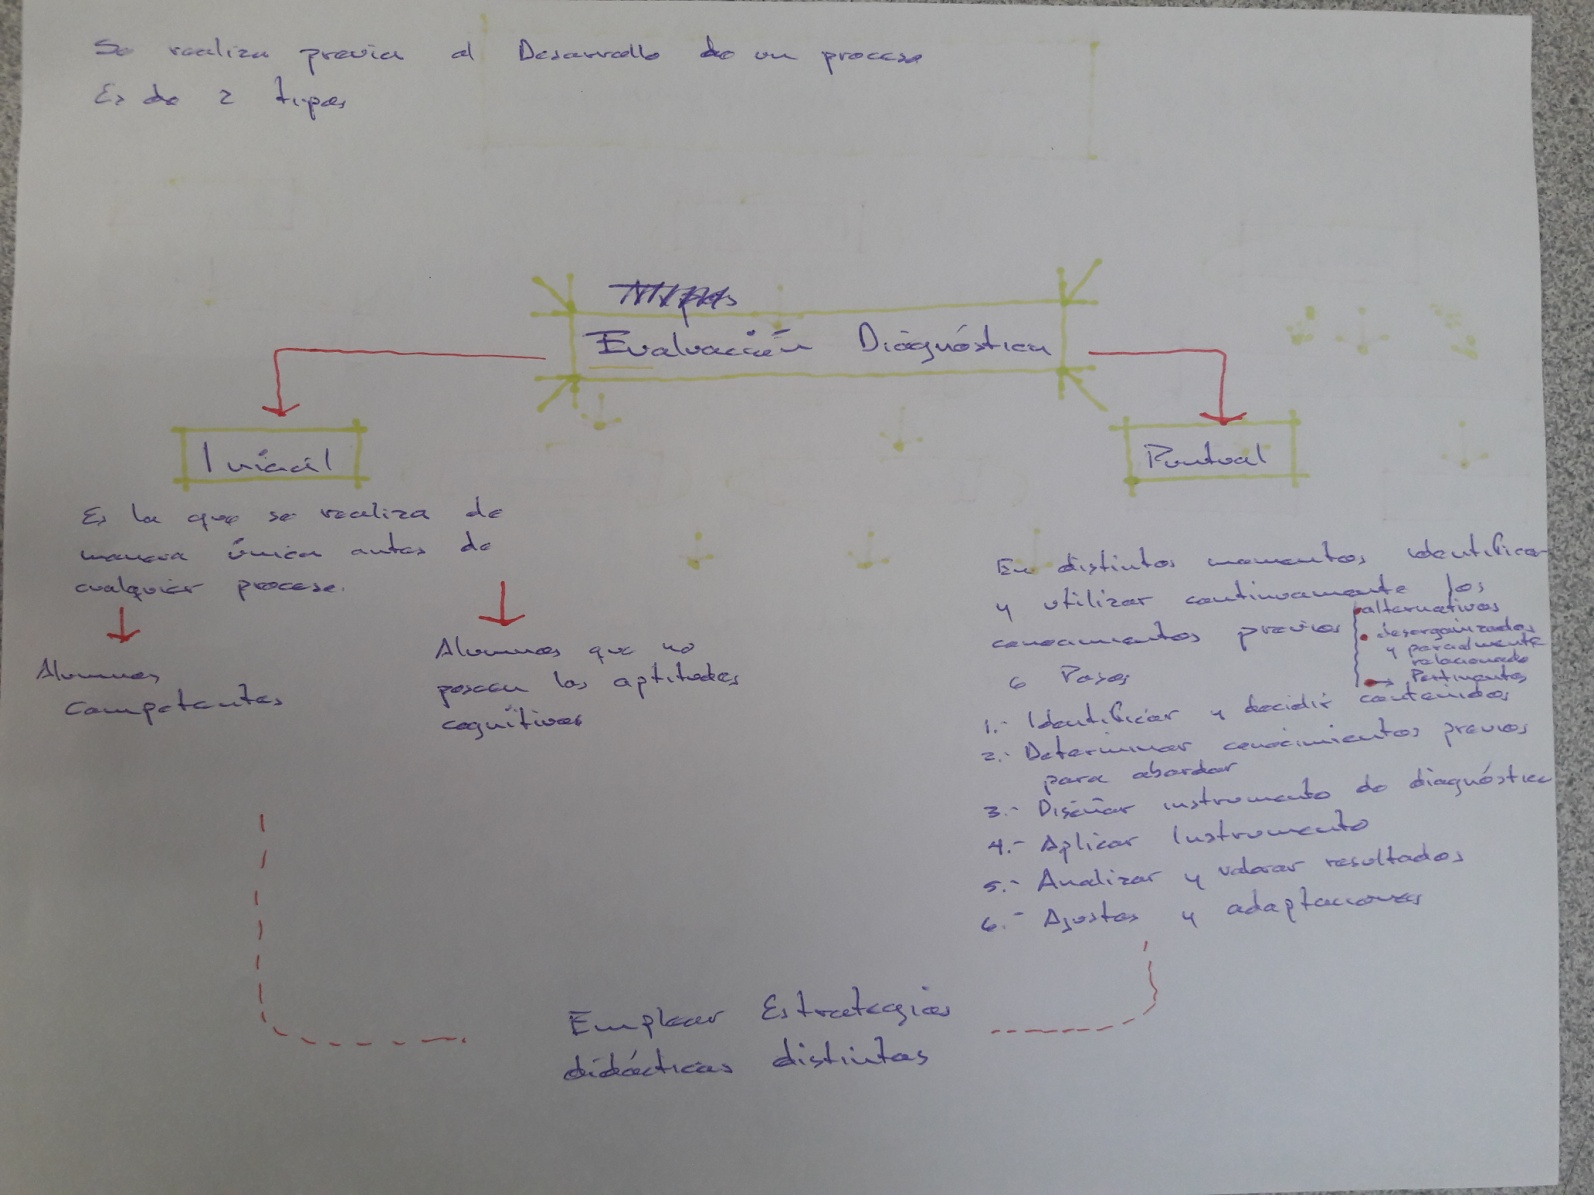 Se realiza previa al Desarrollo de un proceso
Es de 2 tipos
Evaluación Diagnóstica
Inicial
Es la que se realiza de
manera única antes de
cualquier proceso.
Alumnos
competentes
Alumnos que no
poseen las aptitudes
cognitivas
Puntual
En distintos momentos identificar
y utilizar continuamente los
conocimientos previos
alternativos
desorganizados
y parcialmente
relacionado
Pertinentes
6 Pasos
1.- Identificar y decidir contenidos
2.- Determinar conocimientos previos
para abordar
3.- Diseñar instrumento de diagnóstico
4.- Aplicar Instrumento
5.- Analizar y valorar resultados
6.- Ajustes y adaptaciones
Emplear Estrategias
didácticas distintas